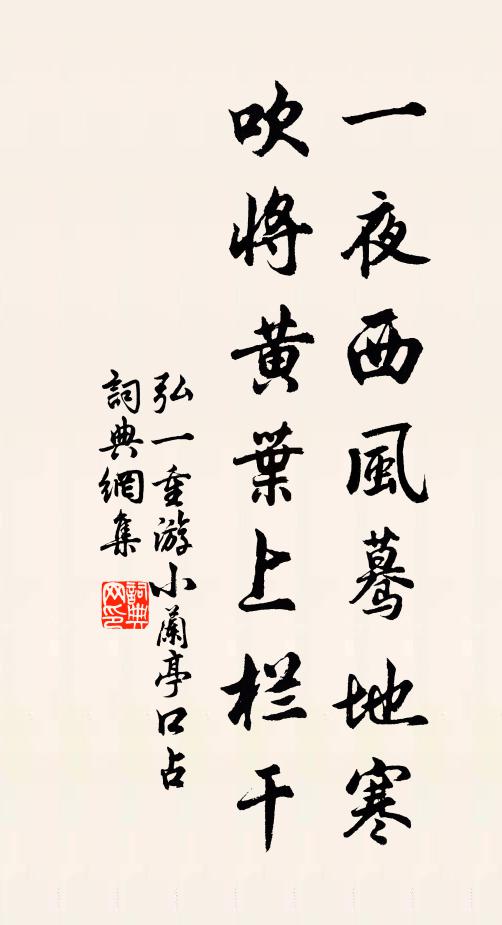 一夜西風驀地寒
吹将黄葉上栏干
弘一重游小蘭亭口占
詞典網集
詞典网印